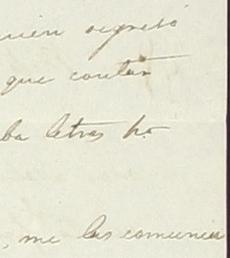 quien regresó
que contar
ba letras
, me las comunica